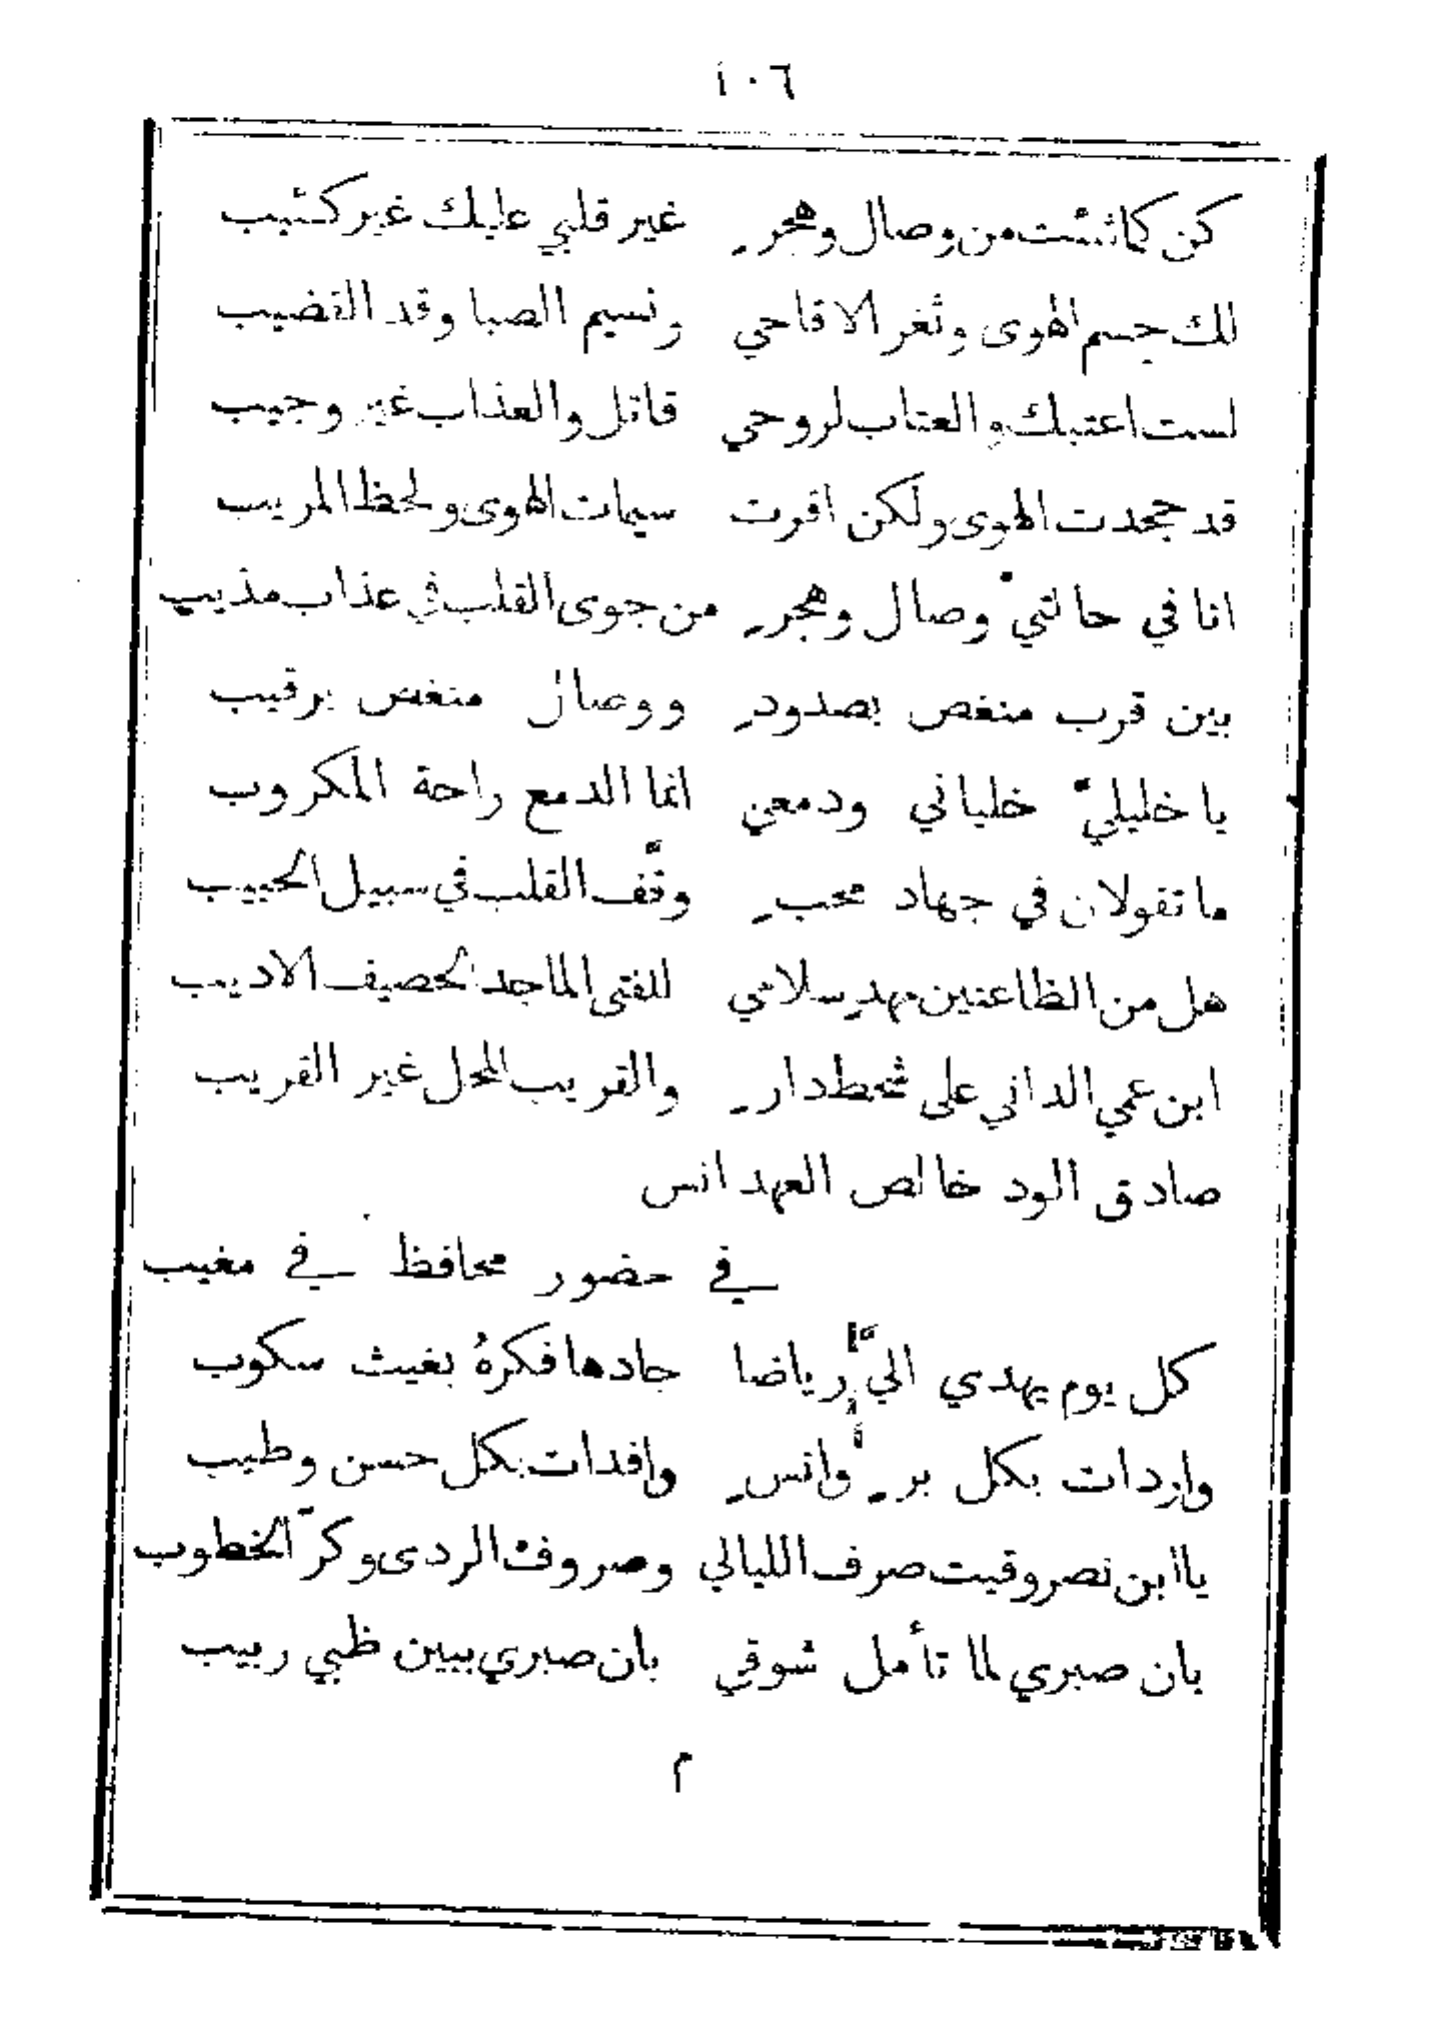 ١٠٦
كن كما شئت من وصال وهجرٍ غير قلبي عليك غير كئيب
لك جسم الهوى وثغر الاقاحي ونسيم الصبا وقد القضيب
لست اعتبك والعتاب لروحي قاتل والعذاب غير وجيب
قد جحدت الهوى ولكن اقرت سيمات الهوى ولحظ المريب
انا في حالتيّ وصال وهجرٍ من جوى القلب في عذاب مذيب
بين قرب منغص بصدودٍ ووصال منغص برقيب
يا خليليّ خلياني ودمعي انما الدمع راحة المكروب
ما تقولان في جهاد محبٍ وقّف القلب في سبيل الحبيب
هل من الظاعنين مهدٍ سلامي للفتى الماجد الحصيف الاديب
ابن عمي الداني على شحط دارٍ والقريب المحل غير القريب
صادق الود خالص العهد انس
في حضور محافظ في مغيب
كل يوم يهدي اليّ رياضا جادها فكرهُ بغيث سكوب
واردات بكل برٍ وانسٍ وافدات بكل حسن وطيب
يا ابن نصر وقيت صرف الليالي وصروف الردى وكرّ الخطوب
بان صبري لما تأمل شوقي بان صبري ببين ظبي ربيب
م